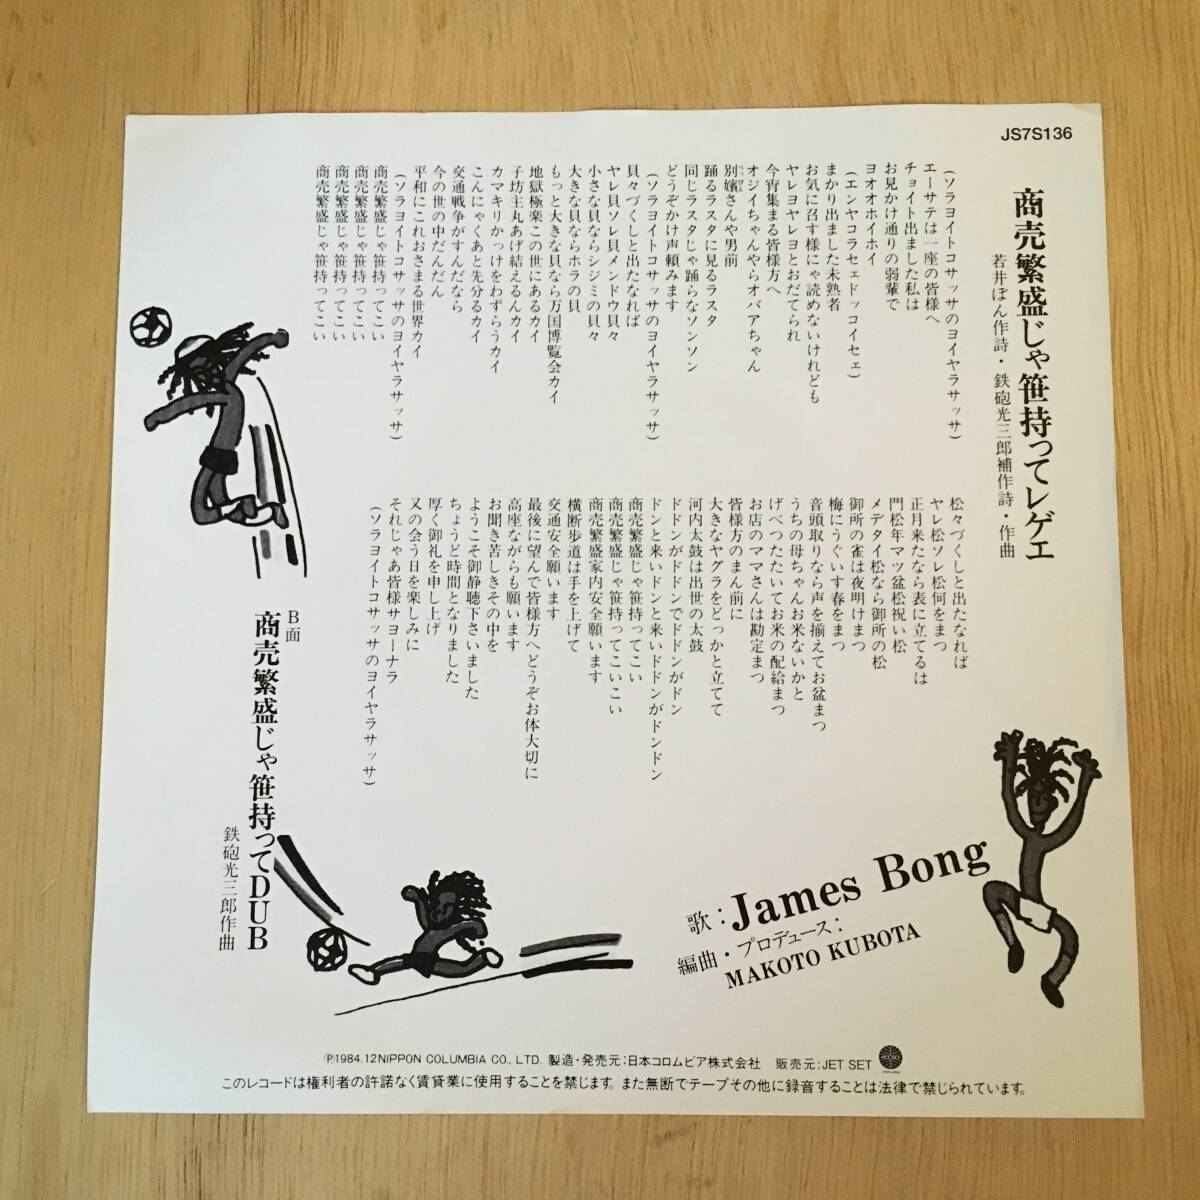 JS7S136
商売繁盛じゃ笹持ってレゲエ
若井ぼん作詩・鉄砲光三郎補作詩・作曲
(ソラヨイトコサッサのヨイヤラサッサ)
エーサテは一座の皆様へ
チョイト出ました私は
お見かけ通りの弱輩で
ヨオオホイホイ
(エンヤコラセェドッコイセェ)
まかり出ました未熟者
お気に召す様にゃ読めないけれども
ヤレヨヤレヨとおだてられ
今宵集まる皆様方へ
オジイちゃんやらオバアちゃん
別嬪さんや男前
踊るラスタに見るラスタ
同じラスタじゃ踊らなソンソン
どうぞかけ声頼みます
(ソラヨイトコサッサのヨイヤラサッサ)
貝々づくしと出たなれば
ヤレ貝ソレ貝メンドウ貝々
小さな貝ならシジミの貝々
大きな貝ならホラの貝
もっと大きな貝なら万国博覧会カイ
地獄極楽この世にあるカイ
子坊主丸あげ結えるんカイ
カマキリかっけをわずらうカイ
こんにゃくあと先分るカイ
交通戦争がすんだなら
今の世の中だんだん
平和にこれおさまる世界カイ
(ソラヨイトコサッサのヨイヤラサッサ)
商売繁盛じゃ笹持ってこい
商売繁盛じゃ笹持ってこい
商売繁盛じゃ笹持ってこい
商売繁盛じゃ笹持ってこい
松々づくしと出たなれば
ヤレ松ソレ松何をまつ
正月来たなら表に立てるは
門松年マツ盆松祝い松
メデタイ松なら御所の松
御所の雀は夜明けまつ
梅にうぐいす春をまつ
音頭取りなら声を揃えてお盆まつ
うちの母ちゃんお米ないかと
げべつたたいてお米の配給まつ
お店のママさんは勘定まつ
皆様方のまん前に
大きなヤグラをどっかと立てて
河内太鼓は出世の太鼓
ドドンがドドンでドドンがドン
ドンと来いドンと来いドドンがドンドン
商売繁盛じゃ笹持ってこい
商売繁盛じゃ笹持ってこいこい
商売繁盛家内安全願います
横断歩道は手を上げて
交通安全願います
最後に望んで皆様方へどうぞお体大切に
高座ながらも願います
お聞き苦しきその中を
ようこそ御静聴下さいました
ちょうど時間となりました
厚く御礼を申し上げ
又の会う日を楽しみに
それじゃあ皆様サヨーナラ
(ソラヨイトコサッサのヨイヤラサッサ)
B面
商売繁盛じゃ笹持ってDUB
鉄砲光三郎作曲
歌:James Bong
編曲・プロデュース:
MAKOTO KUBOTA
Ⓟ1984.12 NIPPON COLUMBIA CO., LTD. 製造・発売元:日本コロムビア株式会社 販売元:JET SET
このレコードは権利者の許諾なく賃貸業に使用することを禁じます。また無断でテープその他に録音することは法律で禁じられています。